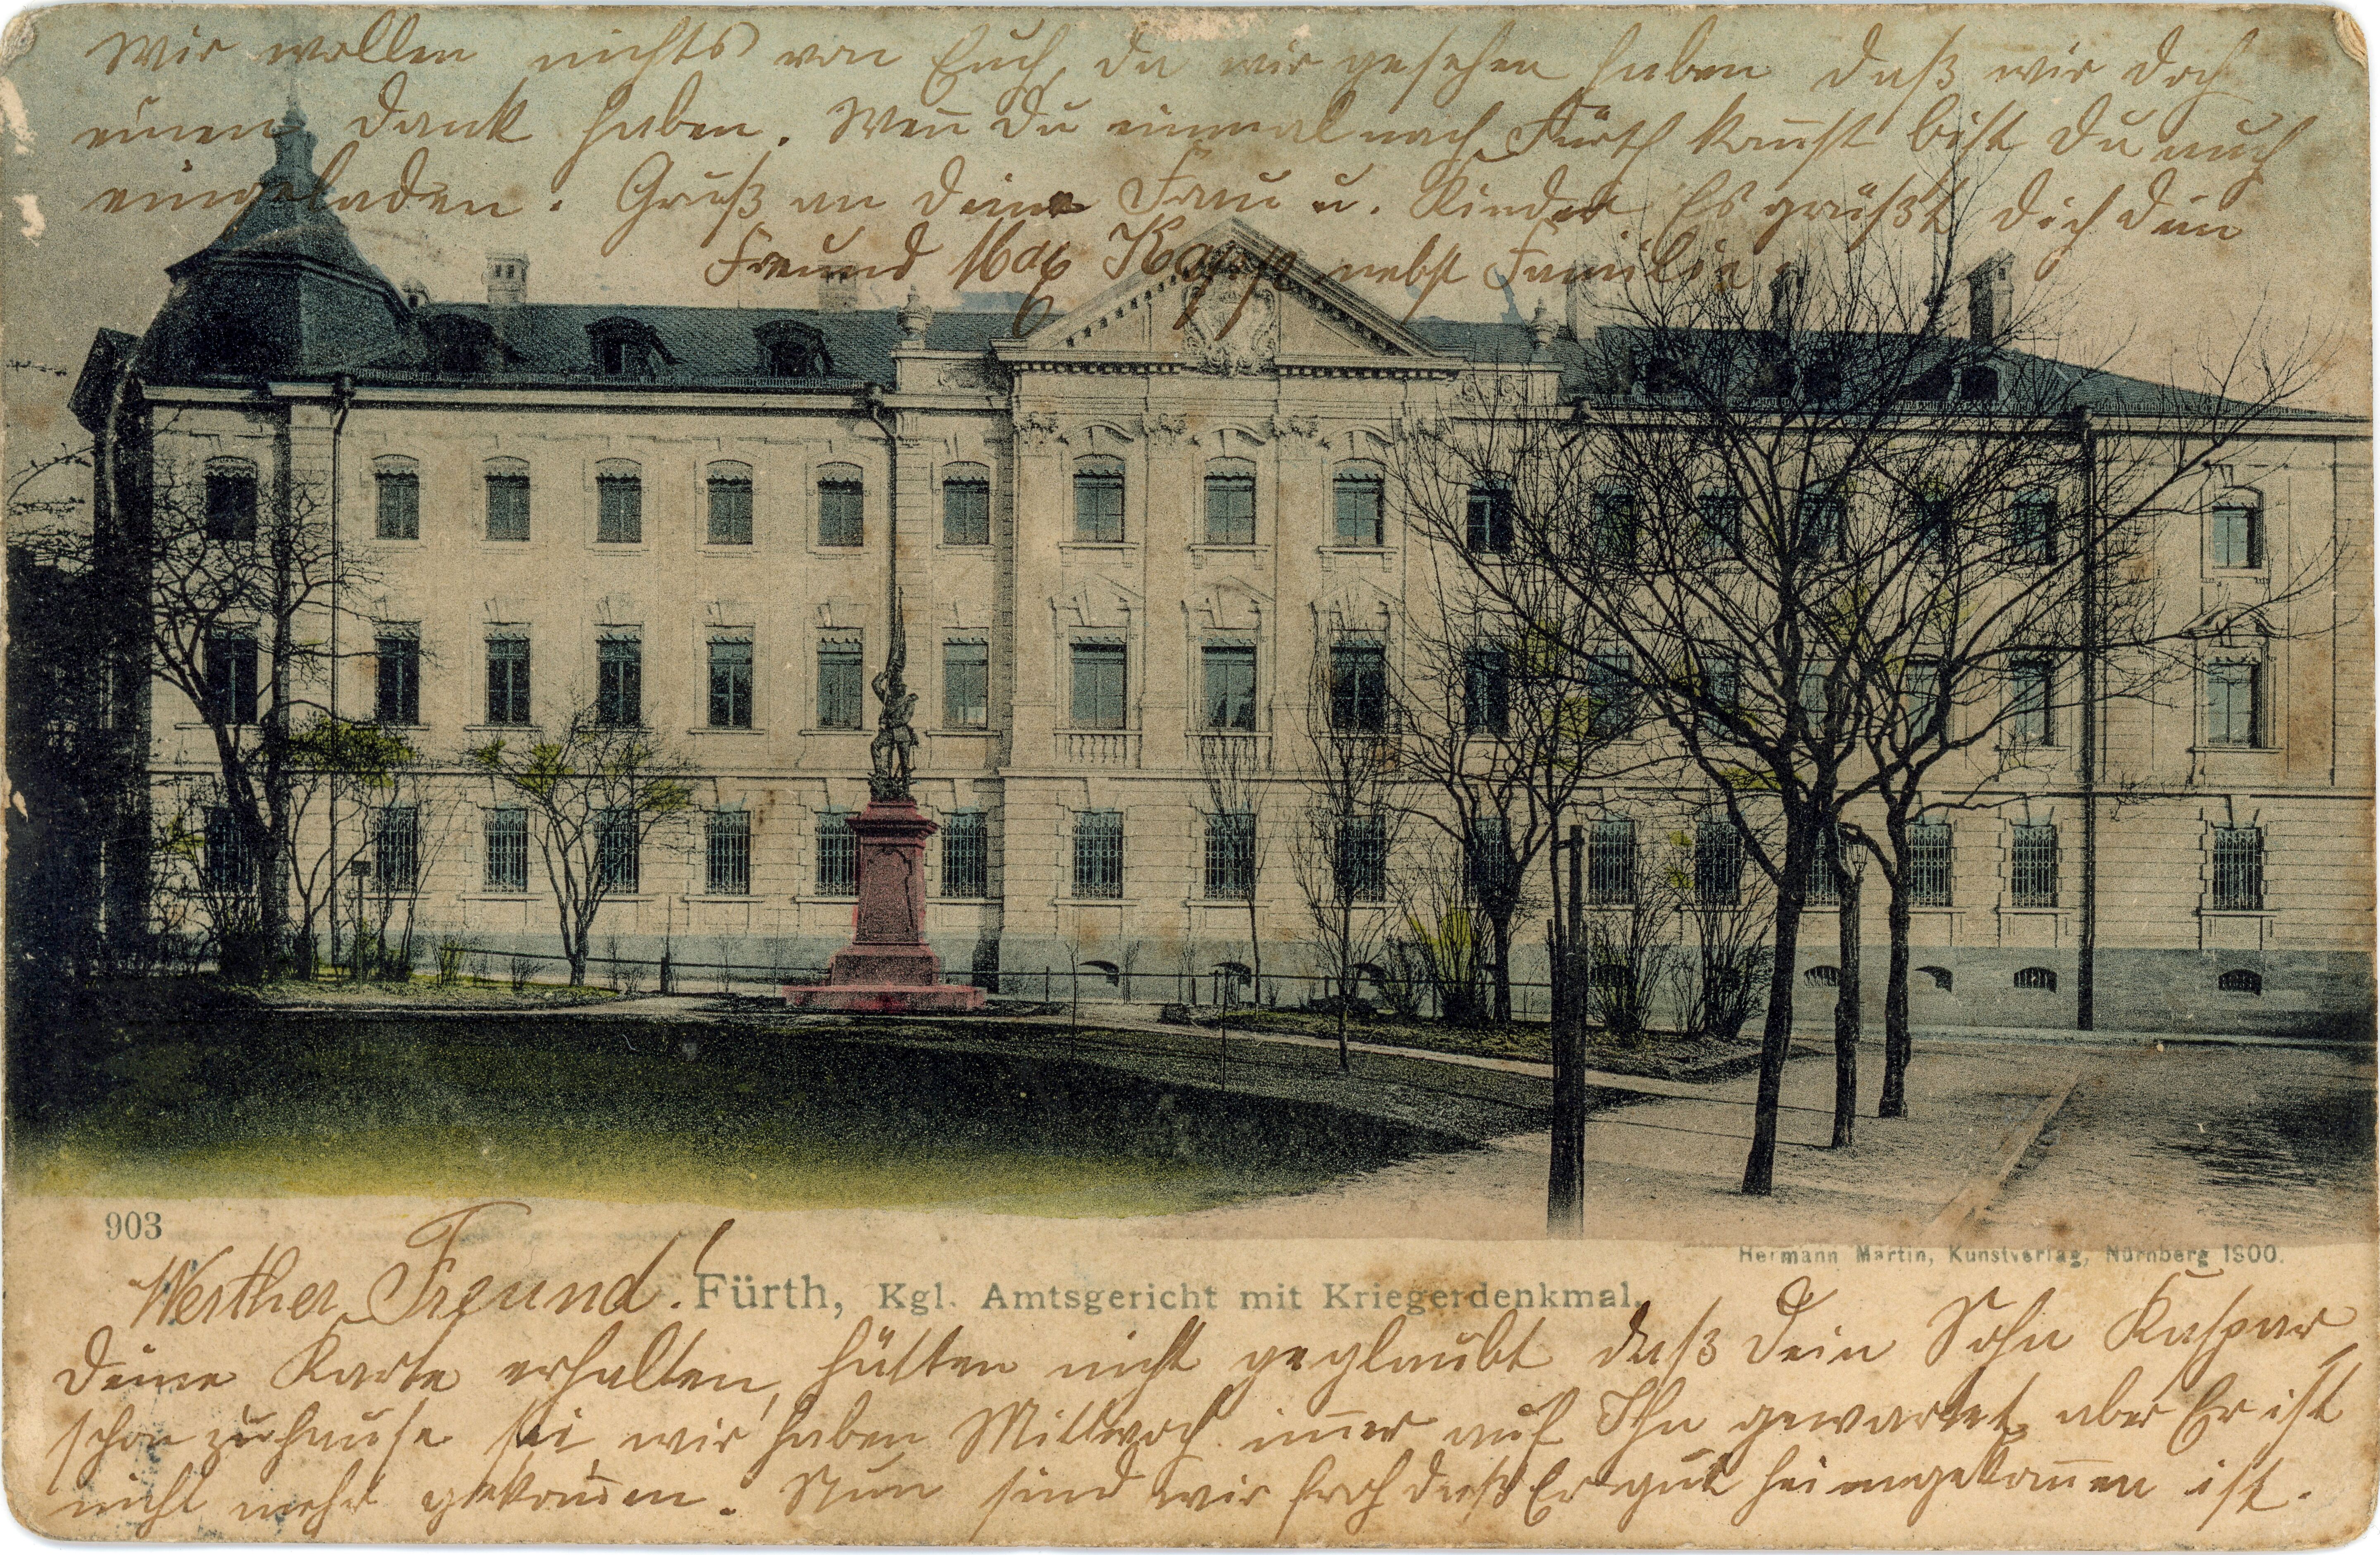 Wir wollen nichts von Euch, da wir gesehen haben daß wir doch
einen Dank haben. Weñ Du einmal nach Fürth kom̃st bist Du auch
eingeladen. Gruß an deine Frau u. Kinder Es grüßt dich dein
Freund Max Kapp nebst Familie.
903
Hermann Martin, Kunstverlag, Nürnberg 1900.
Werther Freund! Fürth, Kgl. Amtsgericht mit Kriegerdenkmal.
deine Karte erhalten, hätten nicht geglaubt daß Dein Sohn Kaspar,
schon zuhause sei wir haben Mittwoch im̃er auf Ihn gewartet, aber Er ist
nicht mehr gekom̃en. Nun sind wir froh daß Er gut heimgekom̃en ist.